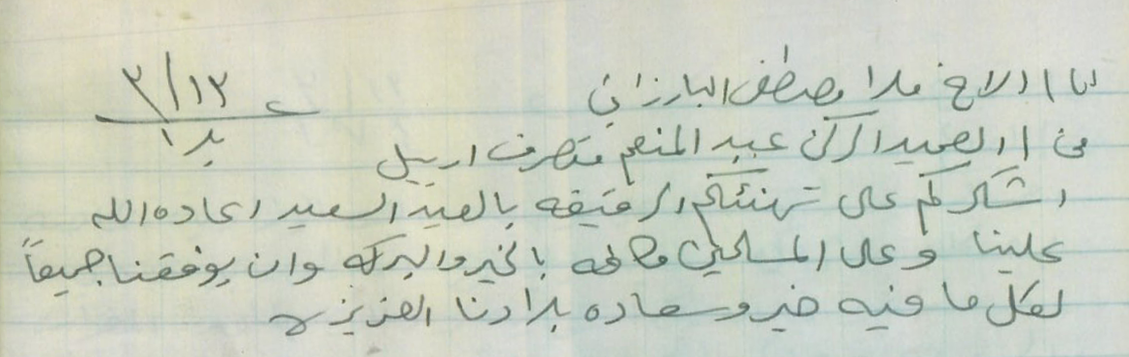 الى / الاخ ملا مصطفى البارزاني
من / العميد الركن عبد المنعم متصرف اربيل
اشكركم على تهنئتكم الرقيقه بالعيد السعيد اعاده الله
علينا وعلى المسلمين كافه بالخير والبركه وان يوفقنا جميعاً
لكل ما فيه خير وسعاده بلادنا العزيزه